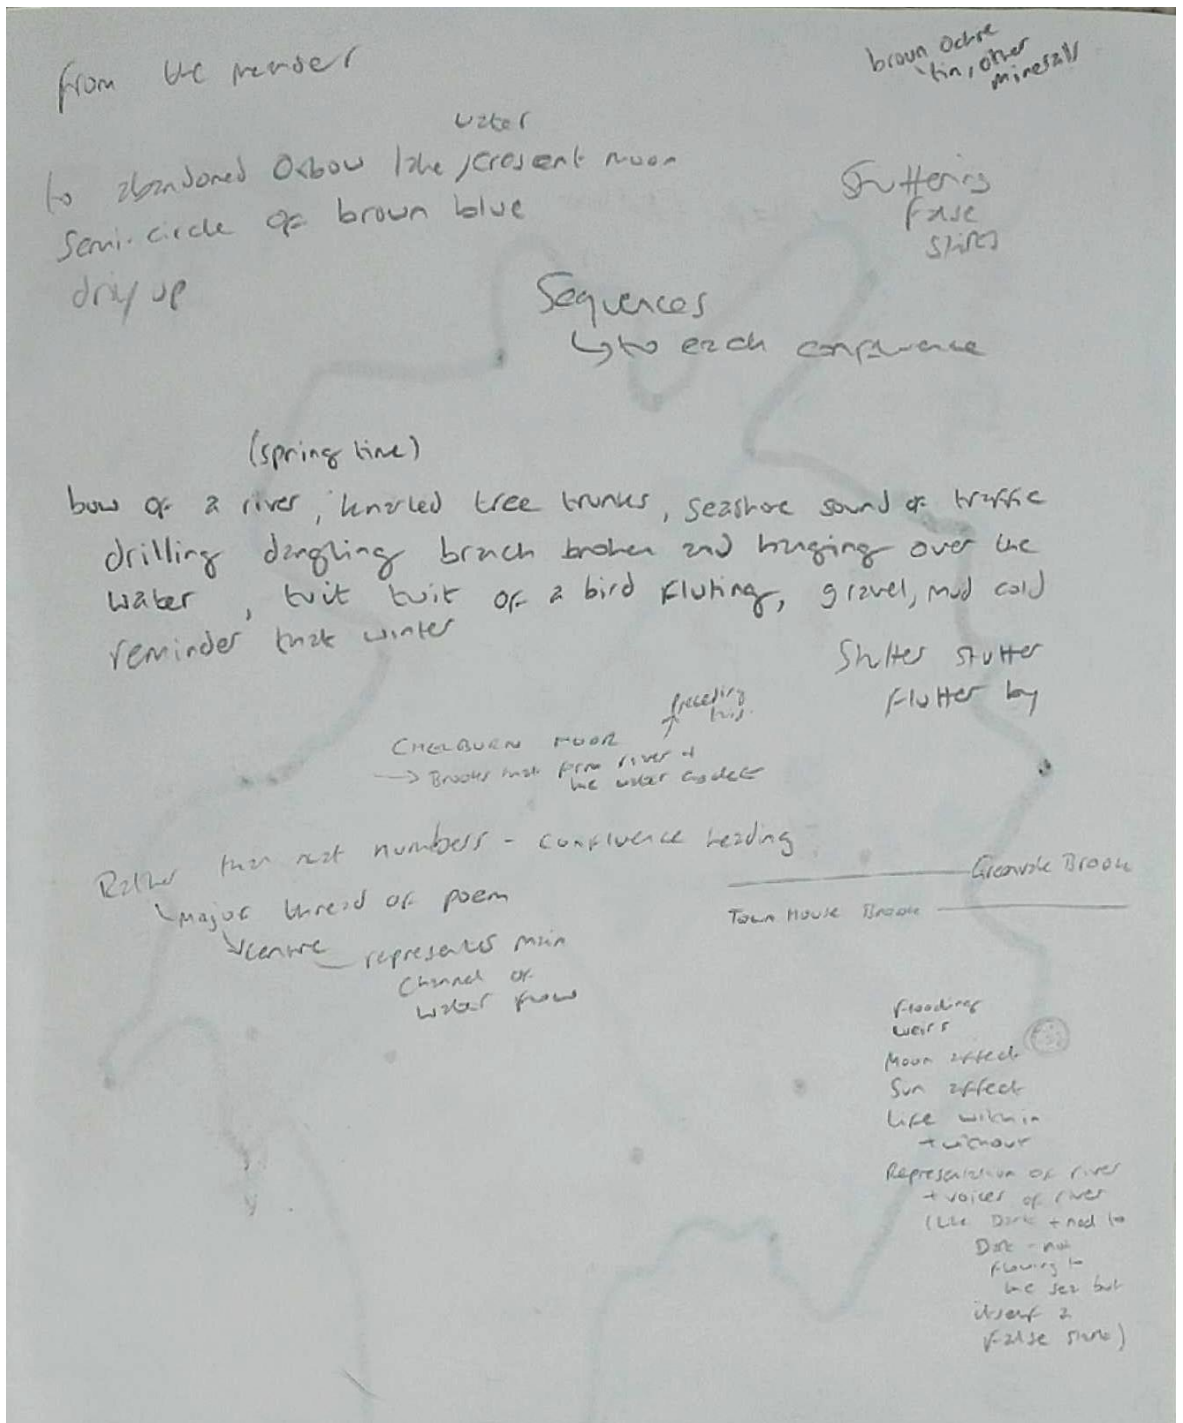 from the meander
brown Ochre
tin, other
minerals
water
to abandoned Oxbow lake, cresent moon
Semi-circle of brown blue
dry up
Stuttering
false
starts
Sequences
↳ to each confluence
(spring time)
bow of a river, knarled tree trunks, seashore sound of traffic
drilling dangling branch broken and hanging over the
water, twit twit of a bird fluting, gravel, mud cold
reminder that winter
Stutter stutter
flutter by
preceding
this.
CHELBURN MOOR
→ Brooks that form river +
the water
Rather than numbers - confluence heading
↳ Major thread of poem
↳ centre — represents main
channel of
water flow
Greenvale Brook
Town House Brook
flooding
weirs
Moon affect
Sun affect
Life within
+ without
Representation of river
+ voices of river
(Like Dart + nod to
Dart - not
flowing to
the sea but
itself a
false start)